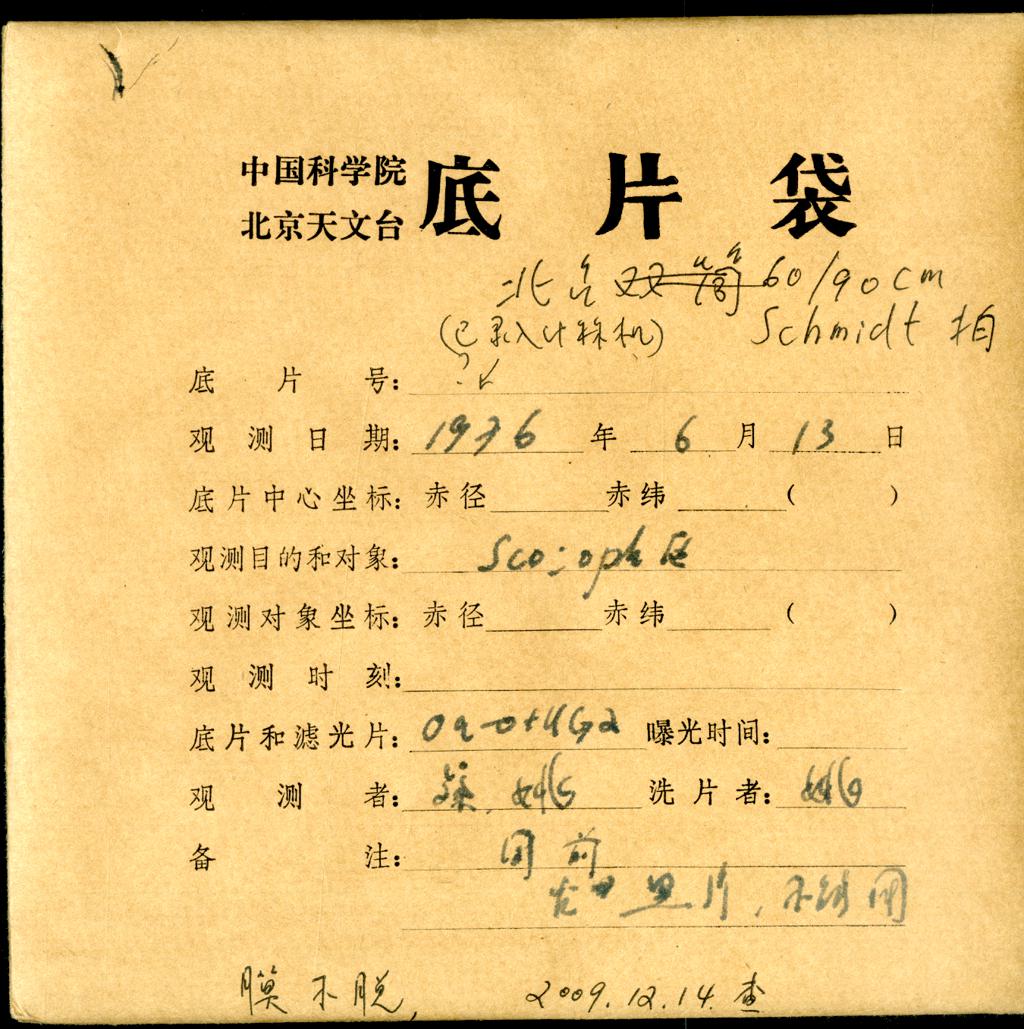 中国科学院
北京天文台
底片袋
北台双筒 60/90cm
(已录入计算机) Schmidt 拍
底片号: ?
观测日期: 1976 年 6 月 13 日
底片中心坐标: 赤径 赤纬 ( )
观测目的和对象: Sco-oph 区
观测对象坐标: 赤径 赤纬 ( )
观测时刻:
底片和滤光片: Oa-O+UG2 曝光时间:
观测者: 姚 洗片者: 姚
备注: 同前
片, 不能用
膜不脱, 2009.12.14.查